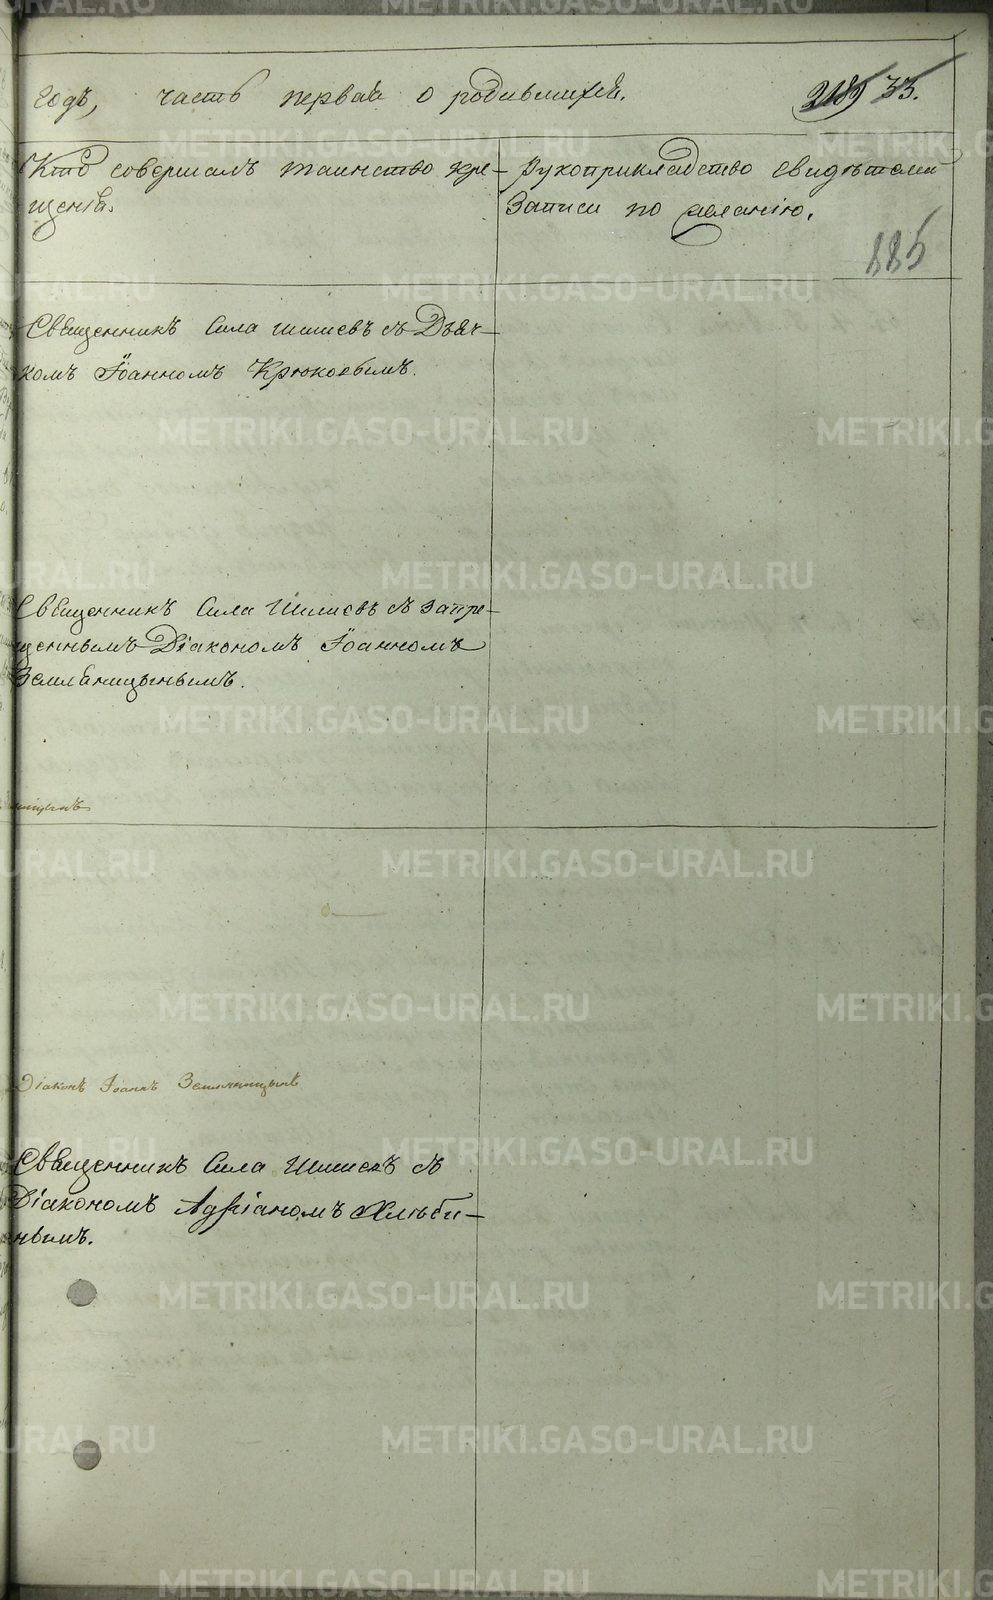 годъ, часть первая о родившихся. 33.
Кто совершалъ таинство кре-
щенія.
Рукоприкладство свидѣтелей
записи по желанію.
885
Священникъ Сила Шишевъ съ Дьяч-
комъ Іоанномъ Крюковымъ.
Священникъ Сила Шишевъ съ запре-
щеннымъ Діакономъ Іоанномъ
Земляницынымъ.
Діаконъ Іоаннъ Земляницынъ
Священникъ Сила Шишевъ съ
Діакономъ Адріаномъ Хлѣби-
нымъ.
METRIKI.GASO-URAL.RU